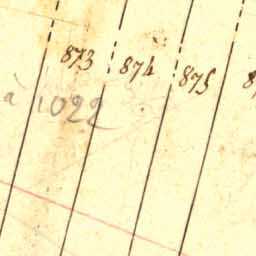 873 874 875
à 1022